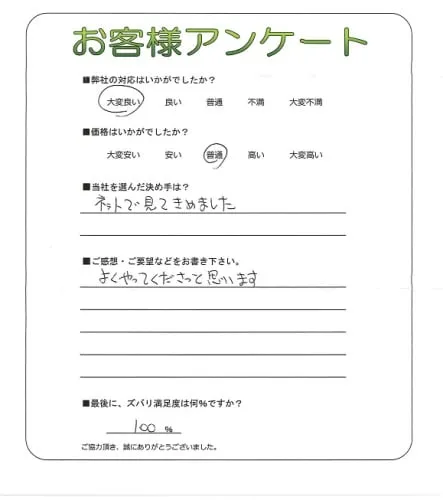 お客様アンケート
■弊社の対応はいかがでしたか？
大変良い 良い 普通 不満 大変不満
■価格はいかがでしたか？
大変安い 安い 普通 高い 大変高い
■当社を選んだ決め手は？
ネットで見てきめました
■ご感想・ご要望などをお書き下さい。
よくやってくださって思います
■最後に、ズバリ満足度は何%ですか？
100 %
ご協力頂き、誠にありがとうございました。